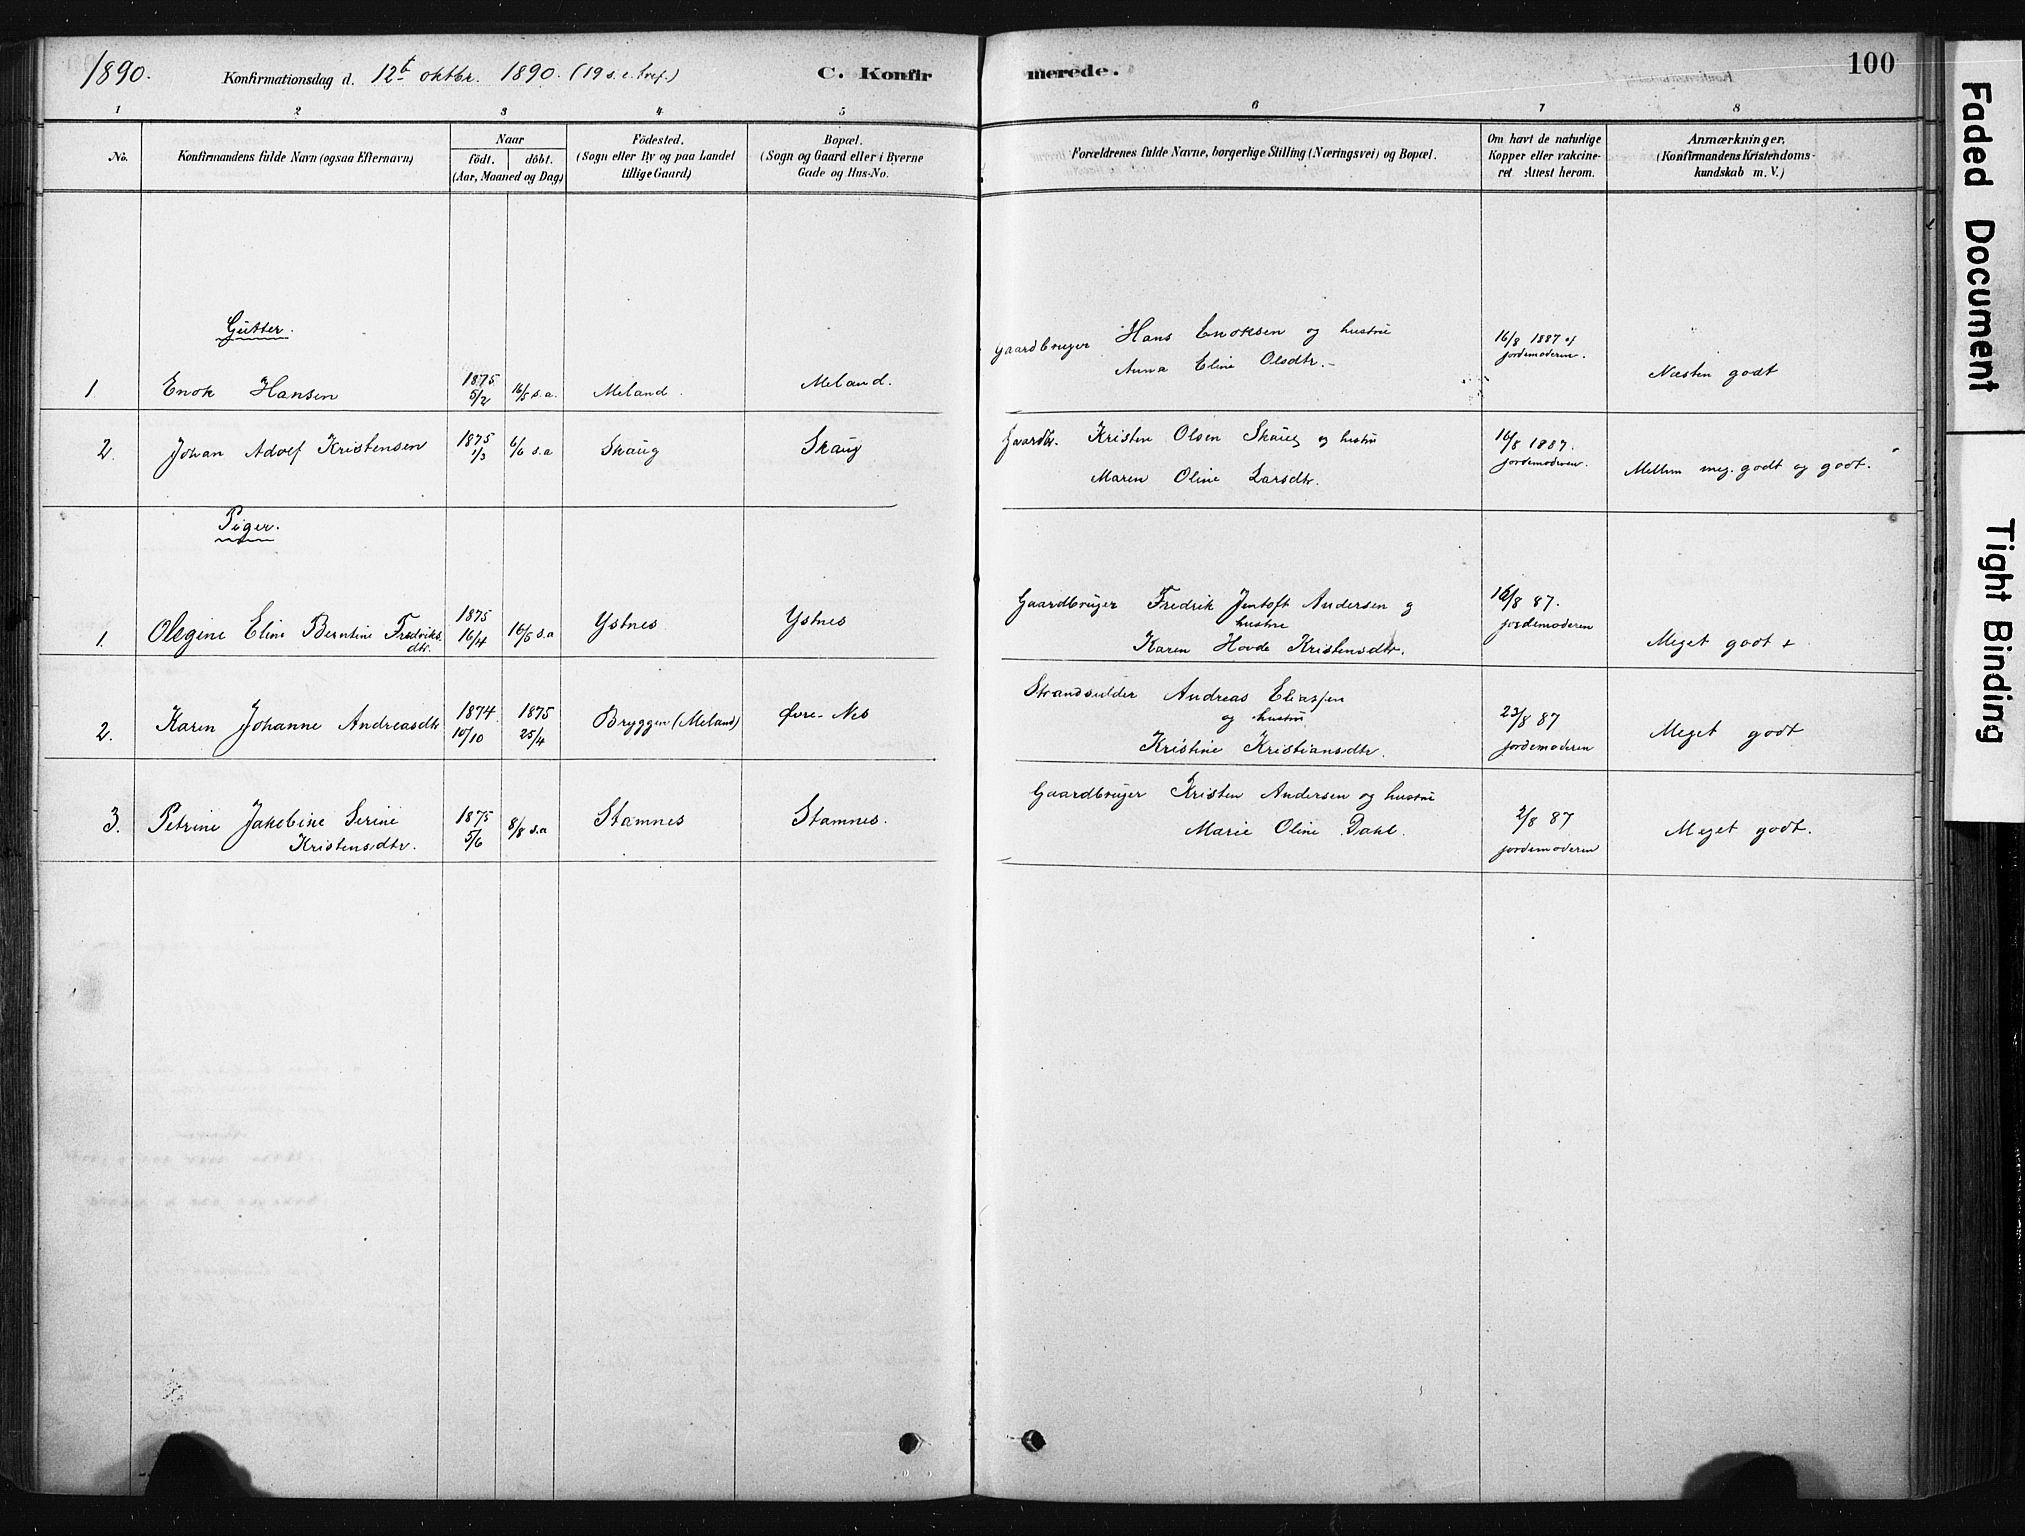 1890. Konfirmationsdag d. 12te oktbr. 1890. (19 s. e. tref.) C. Konfirmerede. 100
1 2 3 4 5 6 7 8
No. Konfirmandens fulde Navn (ogsaa Efternavn) Naar født. døbt. (Aar, Maaned og Dag) Födested. (Sogn eller By og paa Landet tillige Gaard) Bopæl. (Sogn og Gaard eller i Byerne Gade og Hus-No. Forældrenes fulde Navne, borgerlige Stilling (Næringsvei) og Bopæl. Om havt de naturlige Kopper eller vakcineret Attest herom. Anmærkninger. (Konfirmandens Kristendomskundskab m. V.)
Gutter.
1 Enok Hansen 1875 5/2 16/5 s.a. Meland. Meland. gaardbruger Hans Enoksen og hustru Anna Eline Olsdtr. 16/8 1887 af jordemoderen. Næsten godt
2. Johan Adolf Kristensen 1875 1/3 6/6 s.a Skaug Skaug Gaardbr. Kristen Olsen Skaug og hustru Maren Oline Larsdtr. 16/8 1887. jordemoderen. Mellem meg. godt og godt.
Piger.
1. Olegine Eline Berntine Fredriksdtr. 1875 16/4 16/5 s.a Ystnes Ystnes Gaardbruger Fredrik Jentoft Andersen og hustru Karen Hovde Kristensdtr. 16/8 87. jordemoderen Meget godt +
2. Karen Johanne Andreasdtr 1874 10/10 1875 25/4 Bryggen (Meland) Øvre-Nes Strandsidder Andreas Eliassen og hustru Kristine Kristiansdtr. 23/8 87 jordemoderen Meget godt
3. Petrine Jakobine Serine Kristensdtr. 1875 5/6 8/8 s.a Stamnes Stamnes. Gaardbruger Kristen Andersen og hustru Marie Oline Dahl. 2/8 87 jordemoderen Meget godt.
Faded Document
Tight Binding